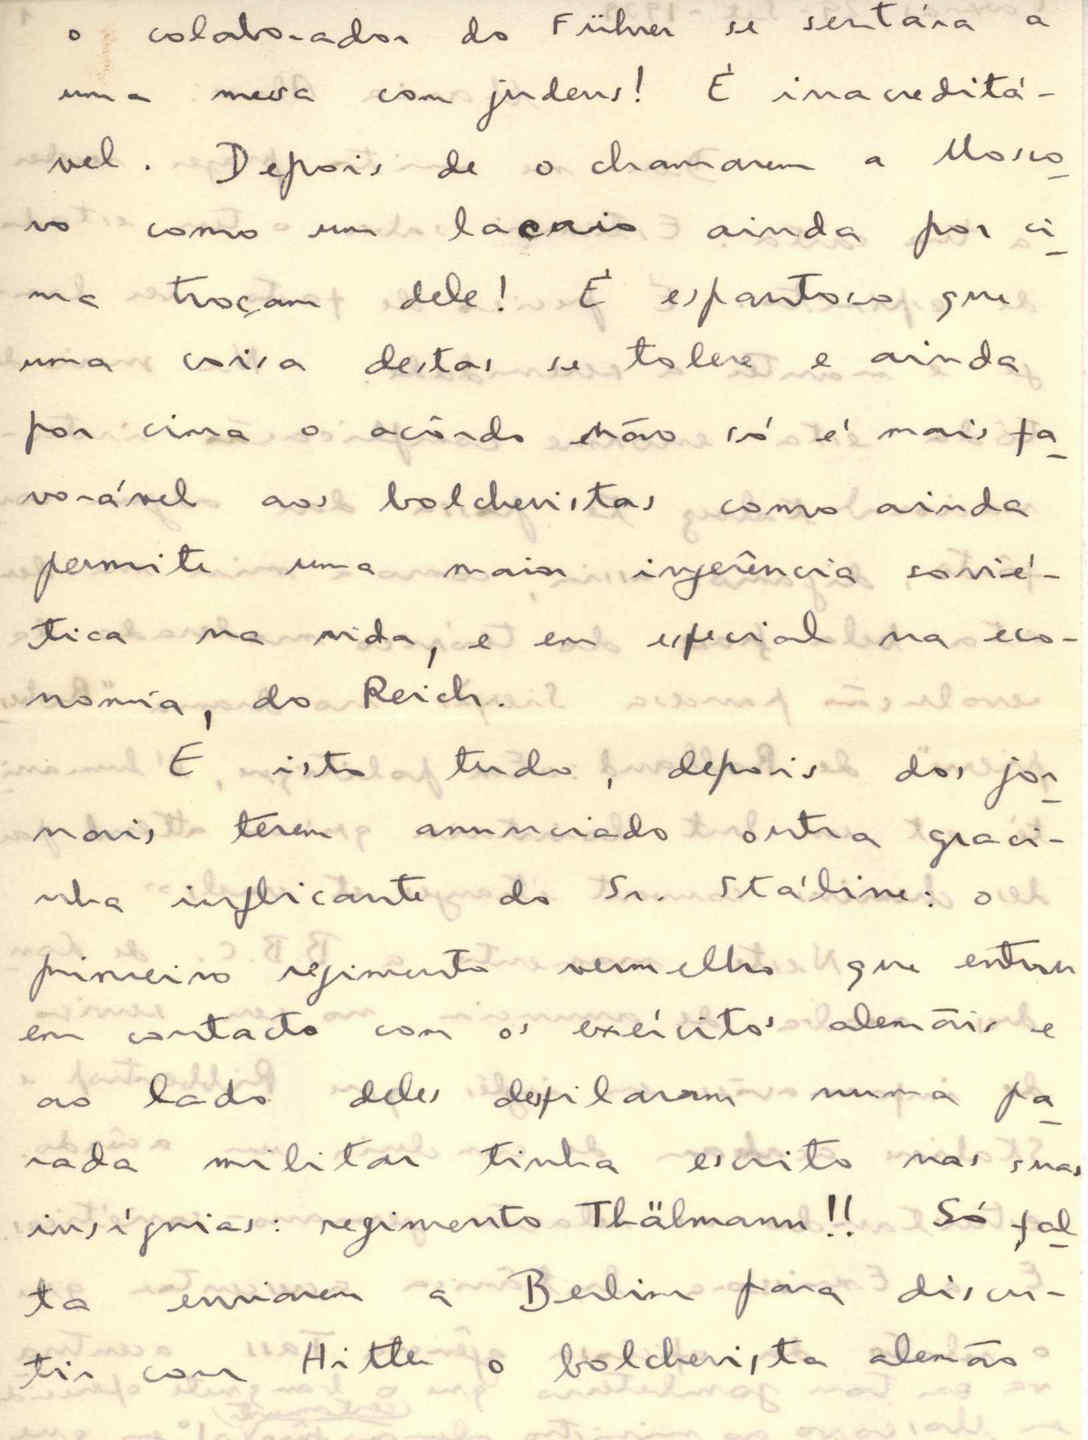 o colaborador do Führer se sentára a
uma mesa com judeus! É inacreditá-
vel. Depois de o chamarem a Mosco
vo como um lacaio ainda por ci
ma troçam dele! É espantoso que
uma coisa destas se tolere e ainda
por cima o acôrdo não só é mais fa
vorável aos bolchevistas como ainda
permite uma maior ingerência sovié-
tica na vida, e em especial na eco-
nomia, do Reich.
E isto tudo, depois dos jor
nais terem anunciado outra graci-
nha implicante do Sr. Stáline: o
primeiro regimento vermelho que entrou
em contacto com os exércitos alemãis e
ao lado deles desfilaram numa pa
rada militar tinha escrito nas suas
insígnias: regimento Thälmann!! Só fal
ta enviarem a Berlim para discu-
tir com Hitler o bolchevista alemão